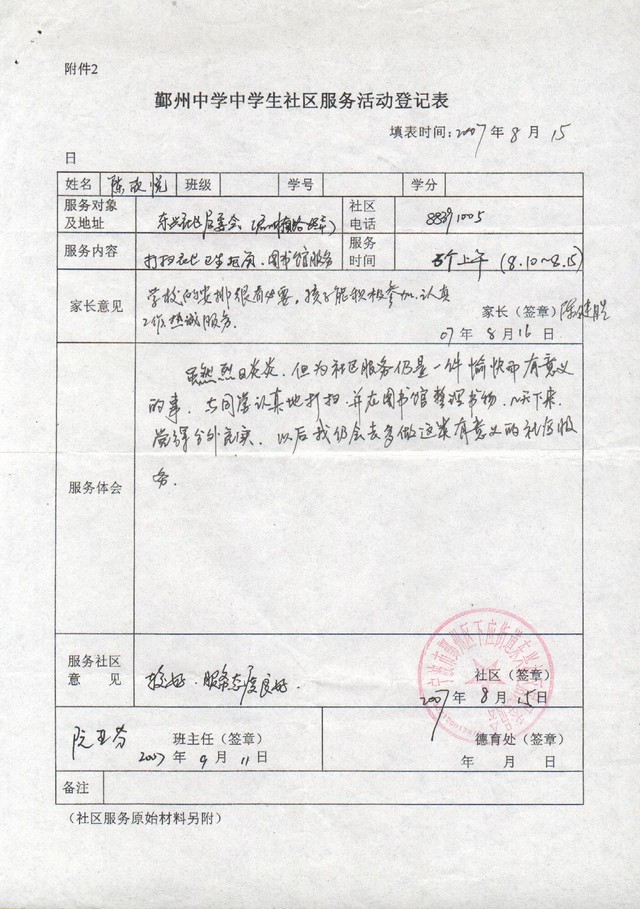 附件2
鄞州中学中学生社区服务活动登记表
填表时间:2007年8月15
日
姓名 陈 悦 班级 学号 学分
服务对象及地址 东兴社区居委会 社区电话 88391005
服务内容 打扫社区卫生 图书馆服务 服务时间 上午 (8.10~8.15)
家长意见
学校的安排很有必要,孩子能积极参加,认真
工作热诚服务.
家长(签章)陈
07年8月16日
服务体会
虽然烈日炎炎,但为社区服务仍是一件愉快而有意义
的事.与同学认真地打扫,并在图书馆整理书物,
觉得分外充实.以后我仍会去多做这类有意义的社区服
务.
服务社区意见 较好.服务态度良好.
社区(签章)
2007年8月15日
阮亚芬 班主任(签章) 德育处(签章)
2007年9月11日 年 月 日
备注
(社区服务原始材料另附)